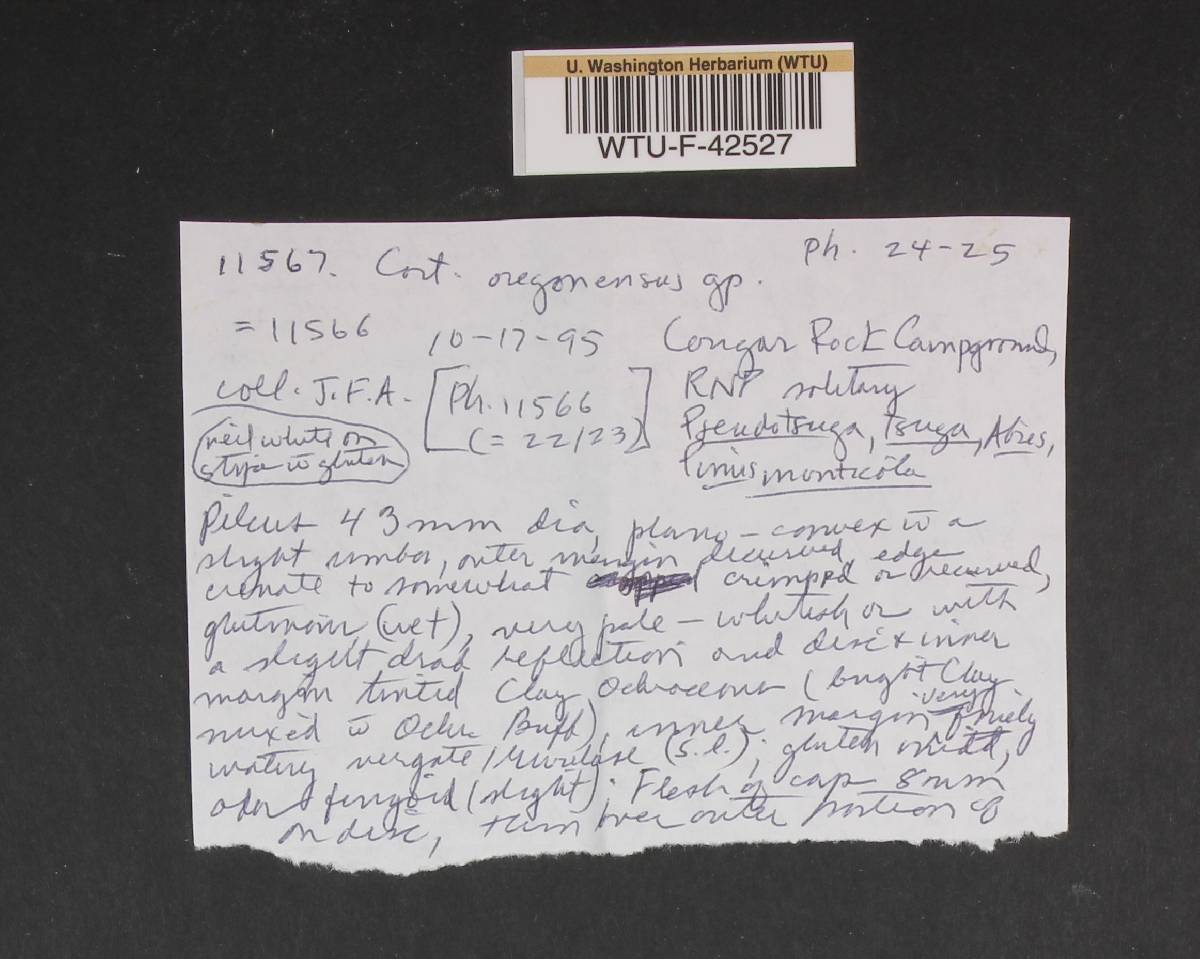 U. Washington Herbarium (WTU)
WTU-F-42527
11567. Cort. oregonensus gp.
Ph. 24-25
= 11566 10-17-95
Cougar Rock Campground,
coll. J.F.A. [Ph. 11566
(= 22/23)]
RNP solitary
Pseudotsuga, Tsuga, Abies,
Pinus monticola
veil white on
stipe w gluten
Pileus 43mm dia, plano-convex w a
slight umbo, outer margin decurved, edge
crenate to somewhat crimped or recurved,
glutinous (wet), very pale - whitish or with
a slight drab reflection and disc & inner
margin tinted Clay Ochraceous (bright Clay
mixed w Ochre Buff), inner margin very finely
watery vergate/rivulose (s.l.); gluten
odor fungoid (slight). Flesh of cap 8mm
on disc, thin over outer portion of